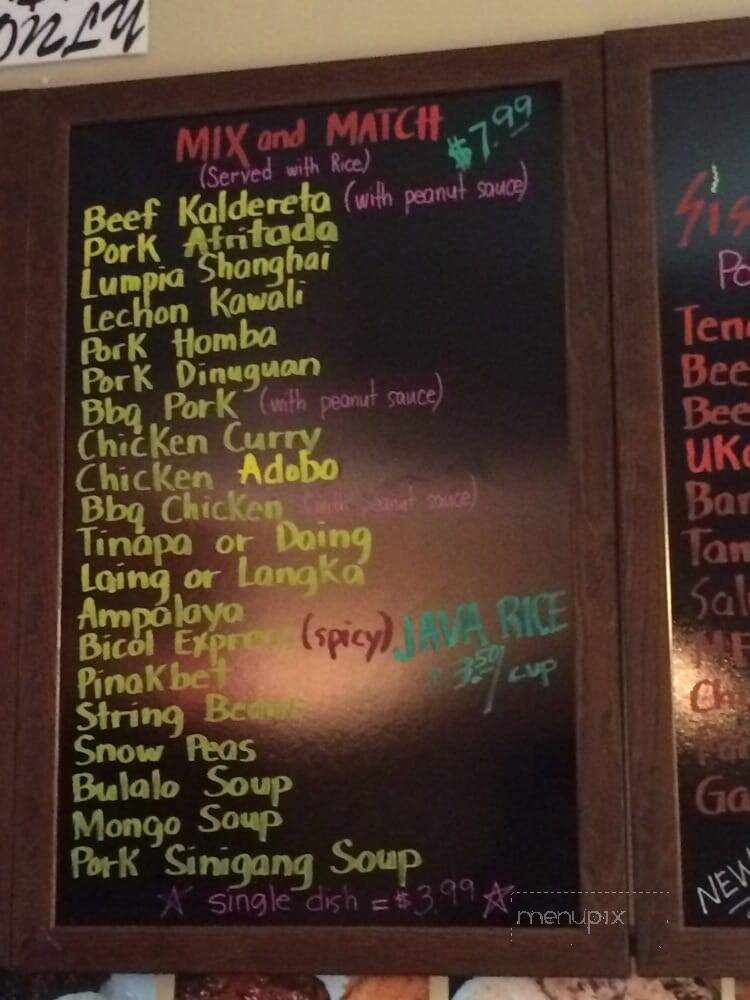 ONLY
MIX and MATCH $7.99
(Served with Rice)
Beef Kaldereta (with peanut sauce)
Pork Afritada
Lumpia Shanghai
Lechon Kawali
Pork Homba
Pork Dinuguan
Bbq Pork (with peanut sauce)
Chicken Curry
Chicken Adobo
Bbq Chicken (with peanut sauce)
Tinapa or Daing
Laing or Langka
Ampalaya
Bicol Express (spicy) JAVA RICE
$3.50/cup
Pinakbet
String Beans
Snow Peas
Bulalo Soup
Mongo Soup
Pork Sinigang Soup
☆ single dish = $3.99 ☆
menupix
NEW